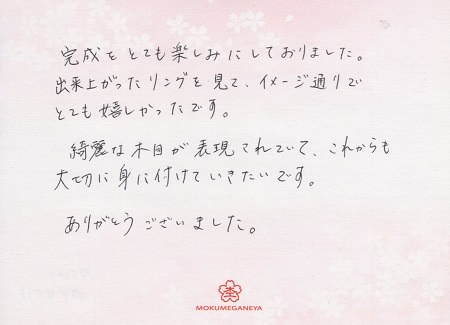 完成をとても楽しみにしておりました。
出来上がったリングを見て、イメージ通りで
とても嬉しかったです。
綺麗な木目が表現されていて、これからも
大切に身に付けていきたいです。
ありがとうございました。
MOKUMEGANEYA